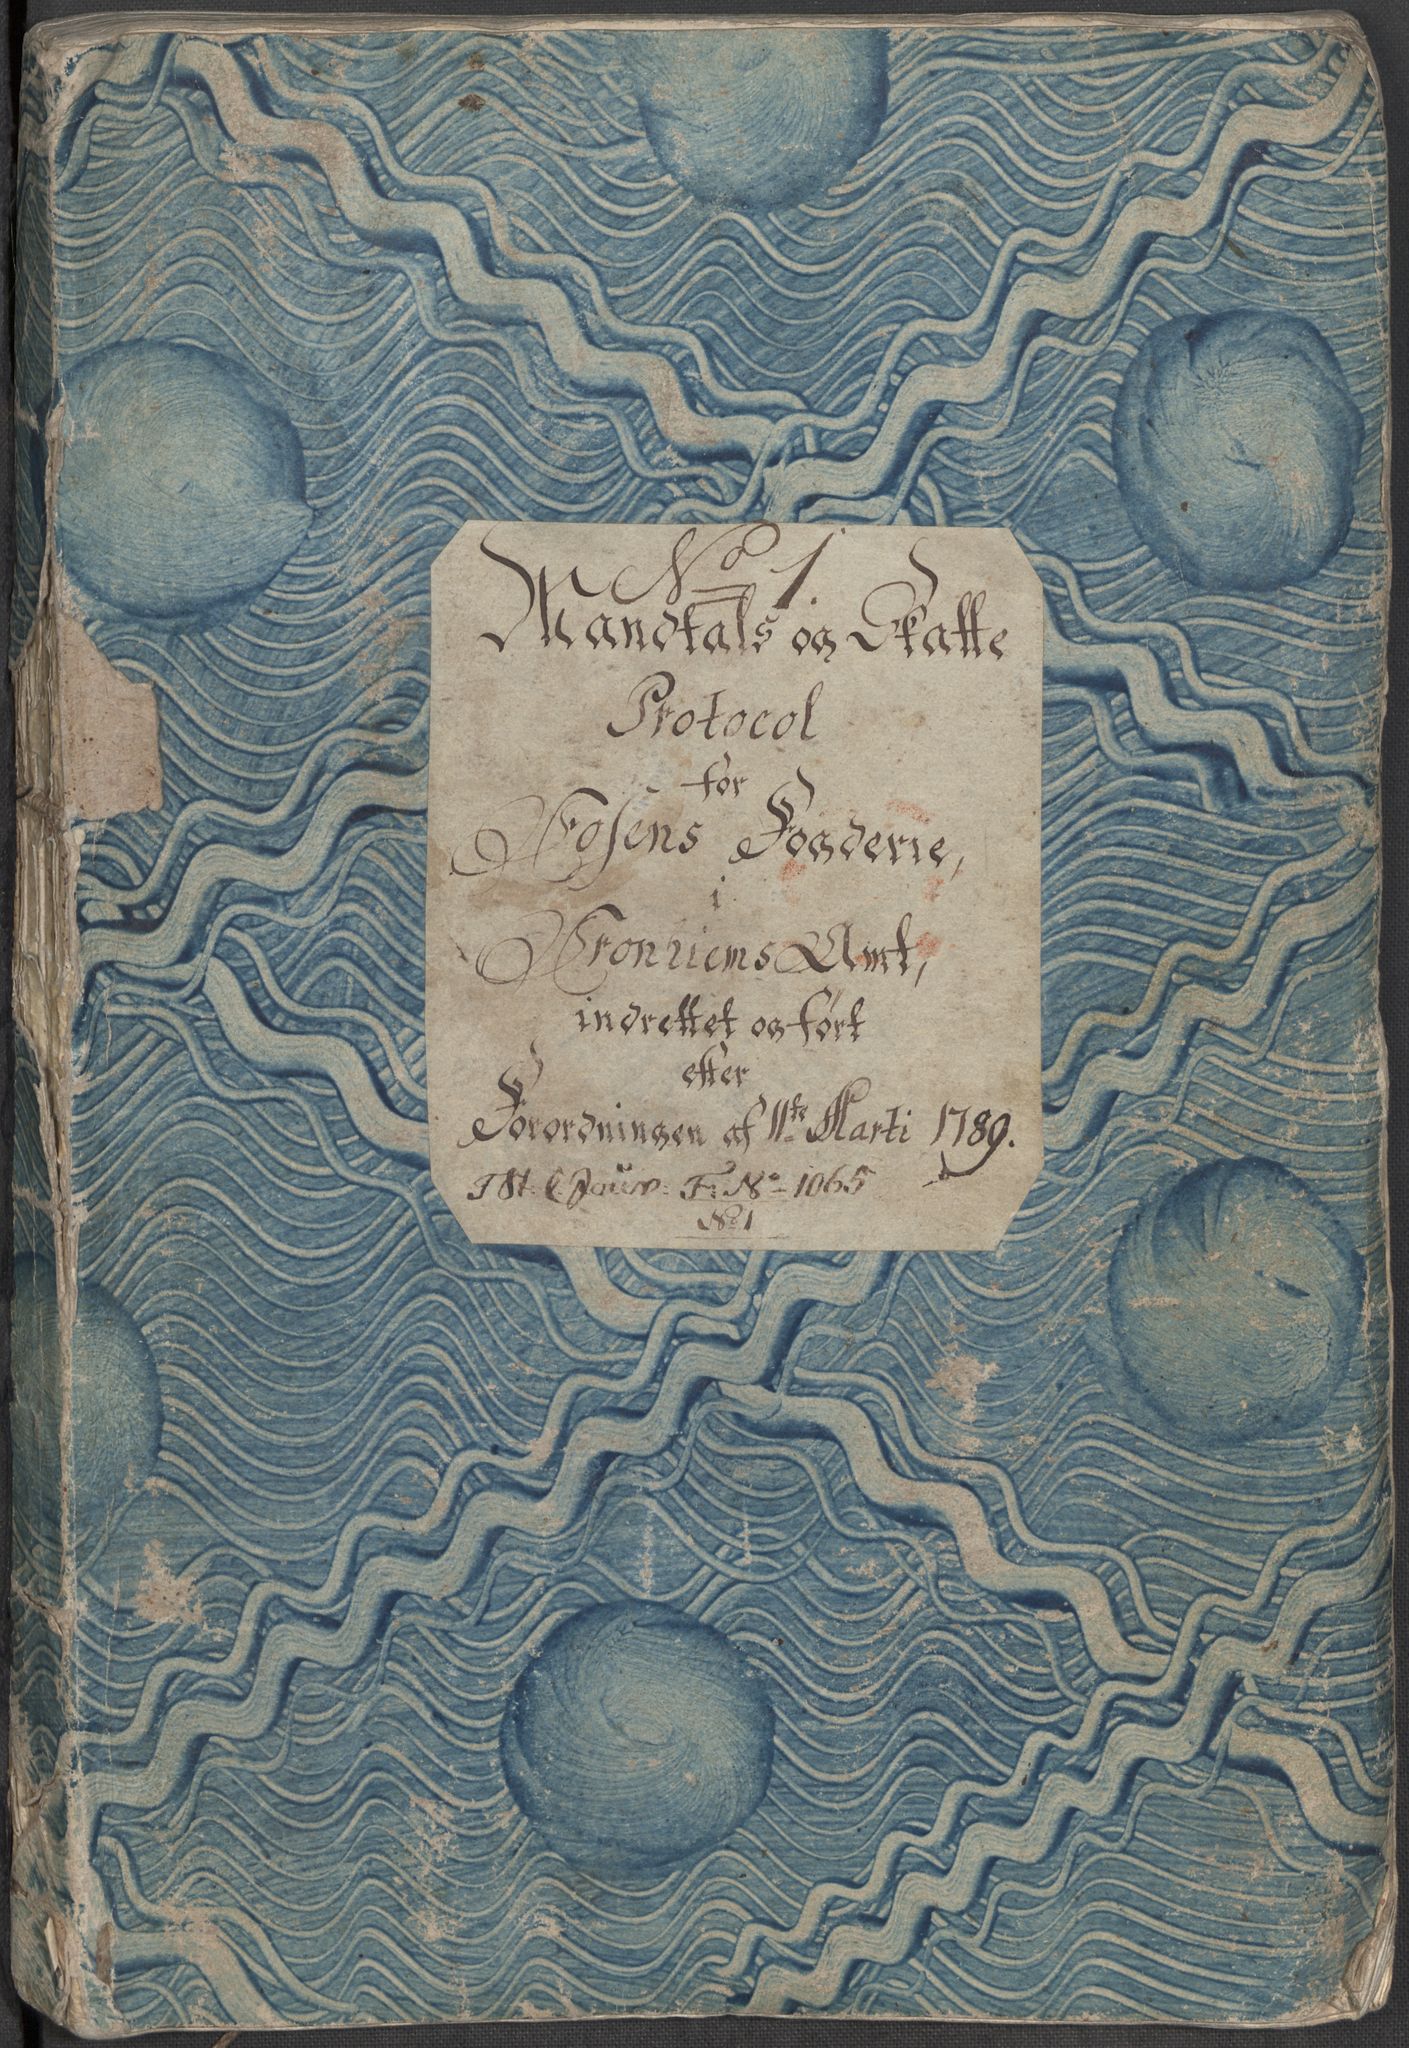 No 1.
Mandtals og Skatte
Protocol
for
Fosens Fogderie,
i
Tronhiems Amt,
indrettet og ført
efter
Forordningen af 11te Marti 1789.
F: No 1065
No 1